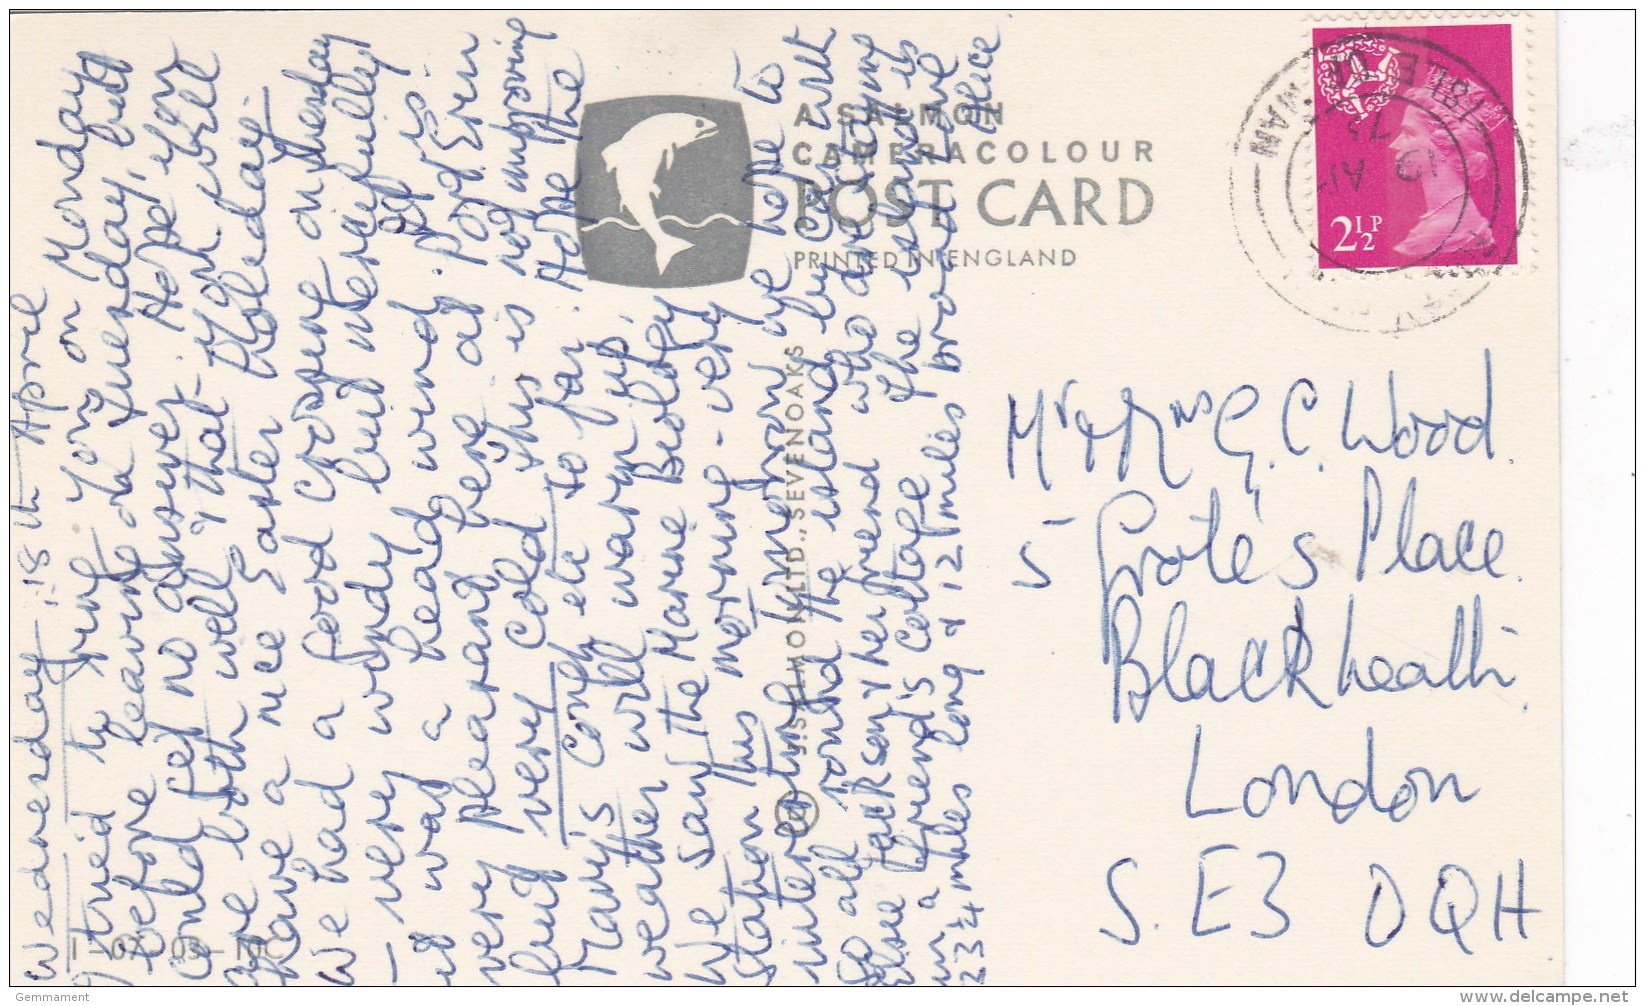 Wednesday :18th April
I tried to ring you on Monday
before leaving on Tuesday, but
could get no answer. Hope you
are both well & that you will
have a nice Easter Holiday.
We had a good crossing on Tuesday
- very windy but mercifully
it was a head wind. Port is
very pleasant here at Port Erin
but very cold this is not improving
Mary's cough etc so far. Hope the
weather will warm up.
We saw the Marine Biology
Station this morning - very
interesting
Go all round the island by car with
Elsie Jackson & her friend who are staying
in a friend's cottage The island is
23¾ miles long & 12⅝ miles broad Love
Alice
A SALMON
CAMERACOLOUR
POST CARD
PRINTED IN ENGLAND
J. SALMON LTD., SEVENOAKS
ISLE OF MAN
19 AP
73
2½P
Mr & Mrs G. C. Wood.
5 Grote's Place
Blackheath
London
S.E3 0QH
Gemmament
www.delcampe.net